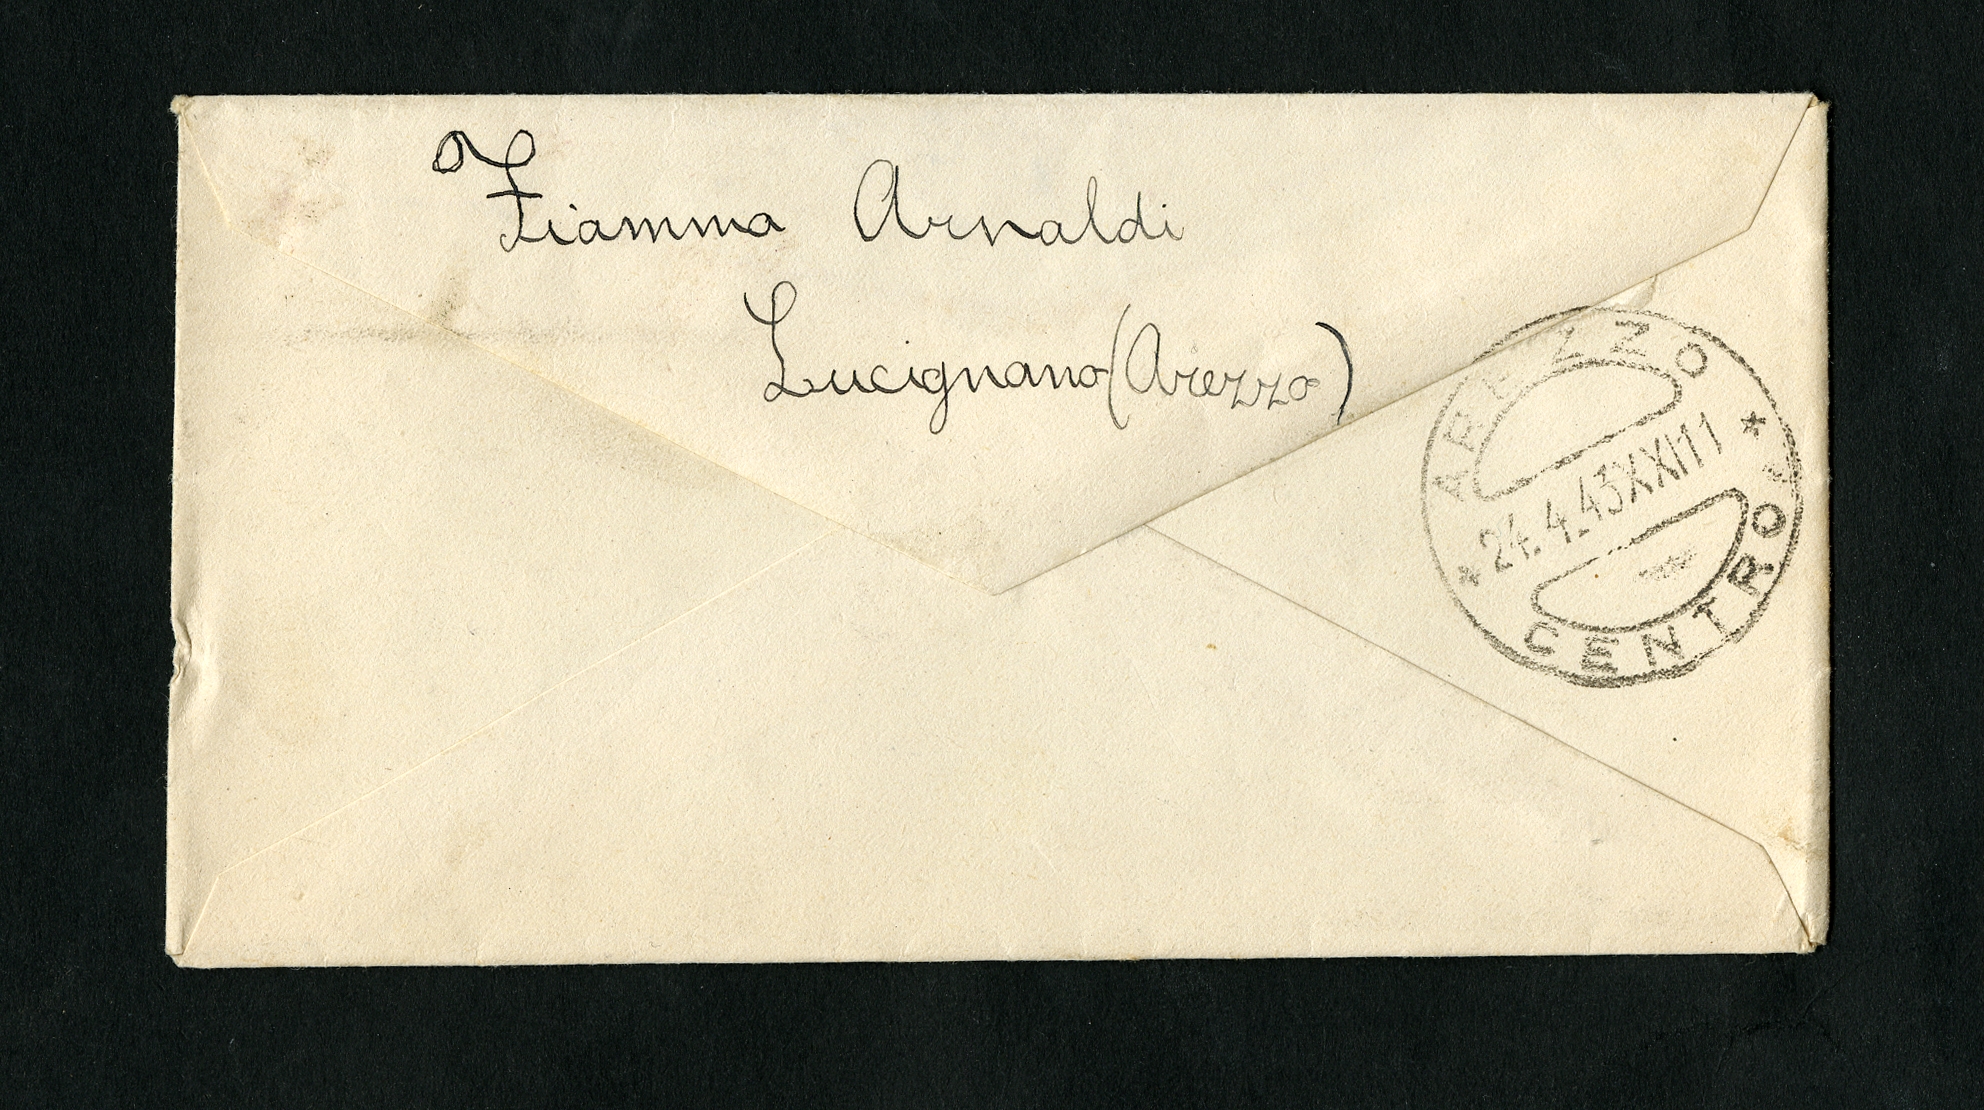 Fiamma Arnaldi
Lucignano (Arezzo)
AREZZO
* 24.4.43XXI11 *
CENTRO